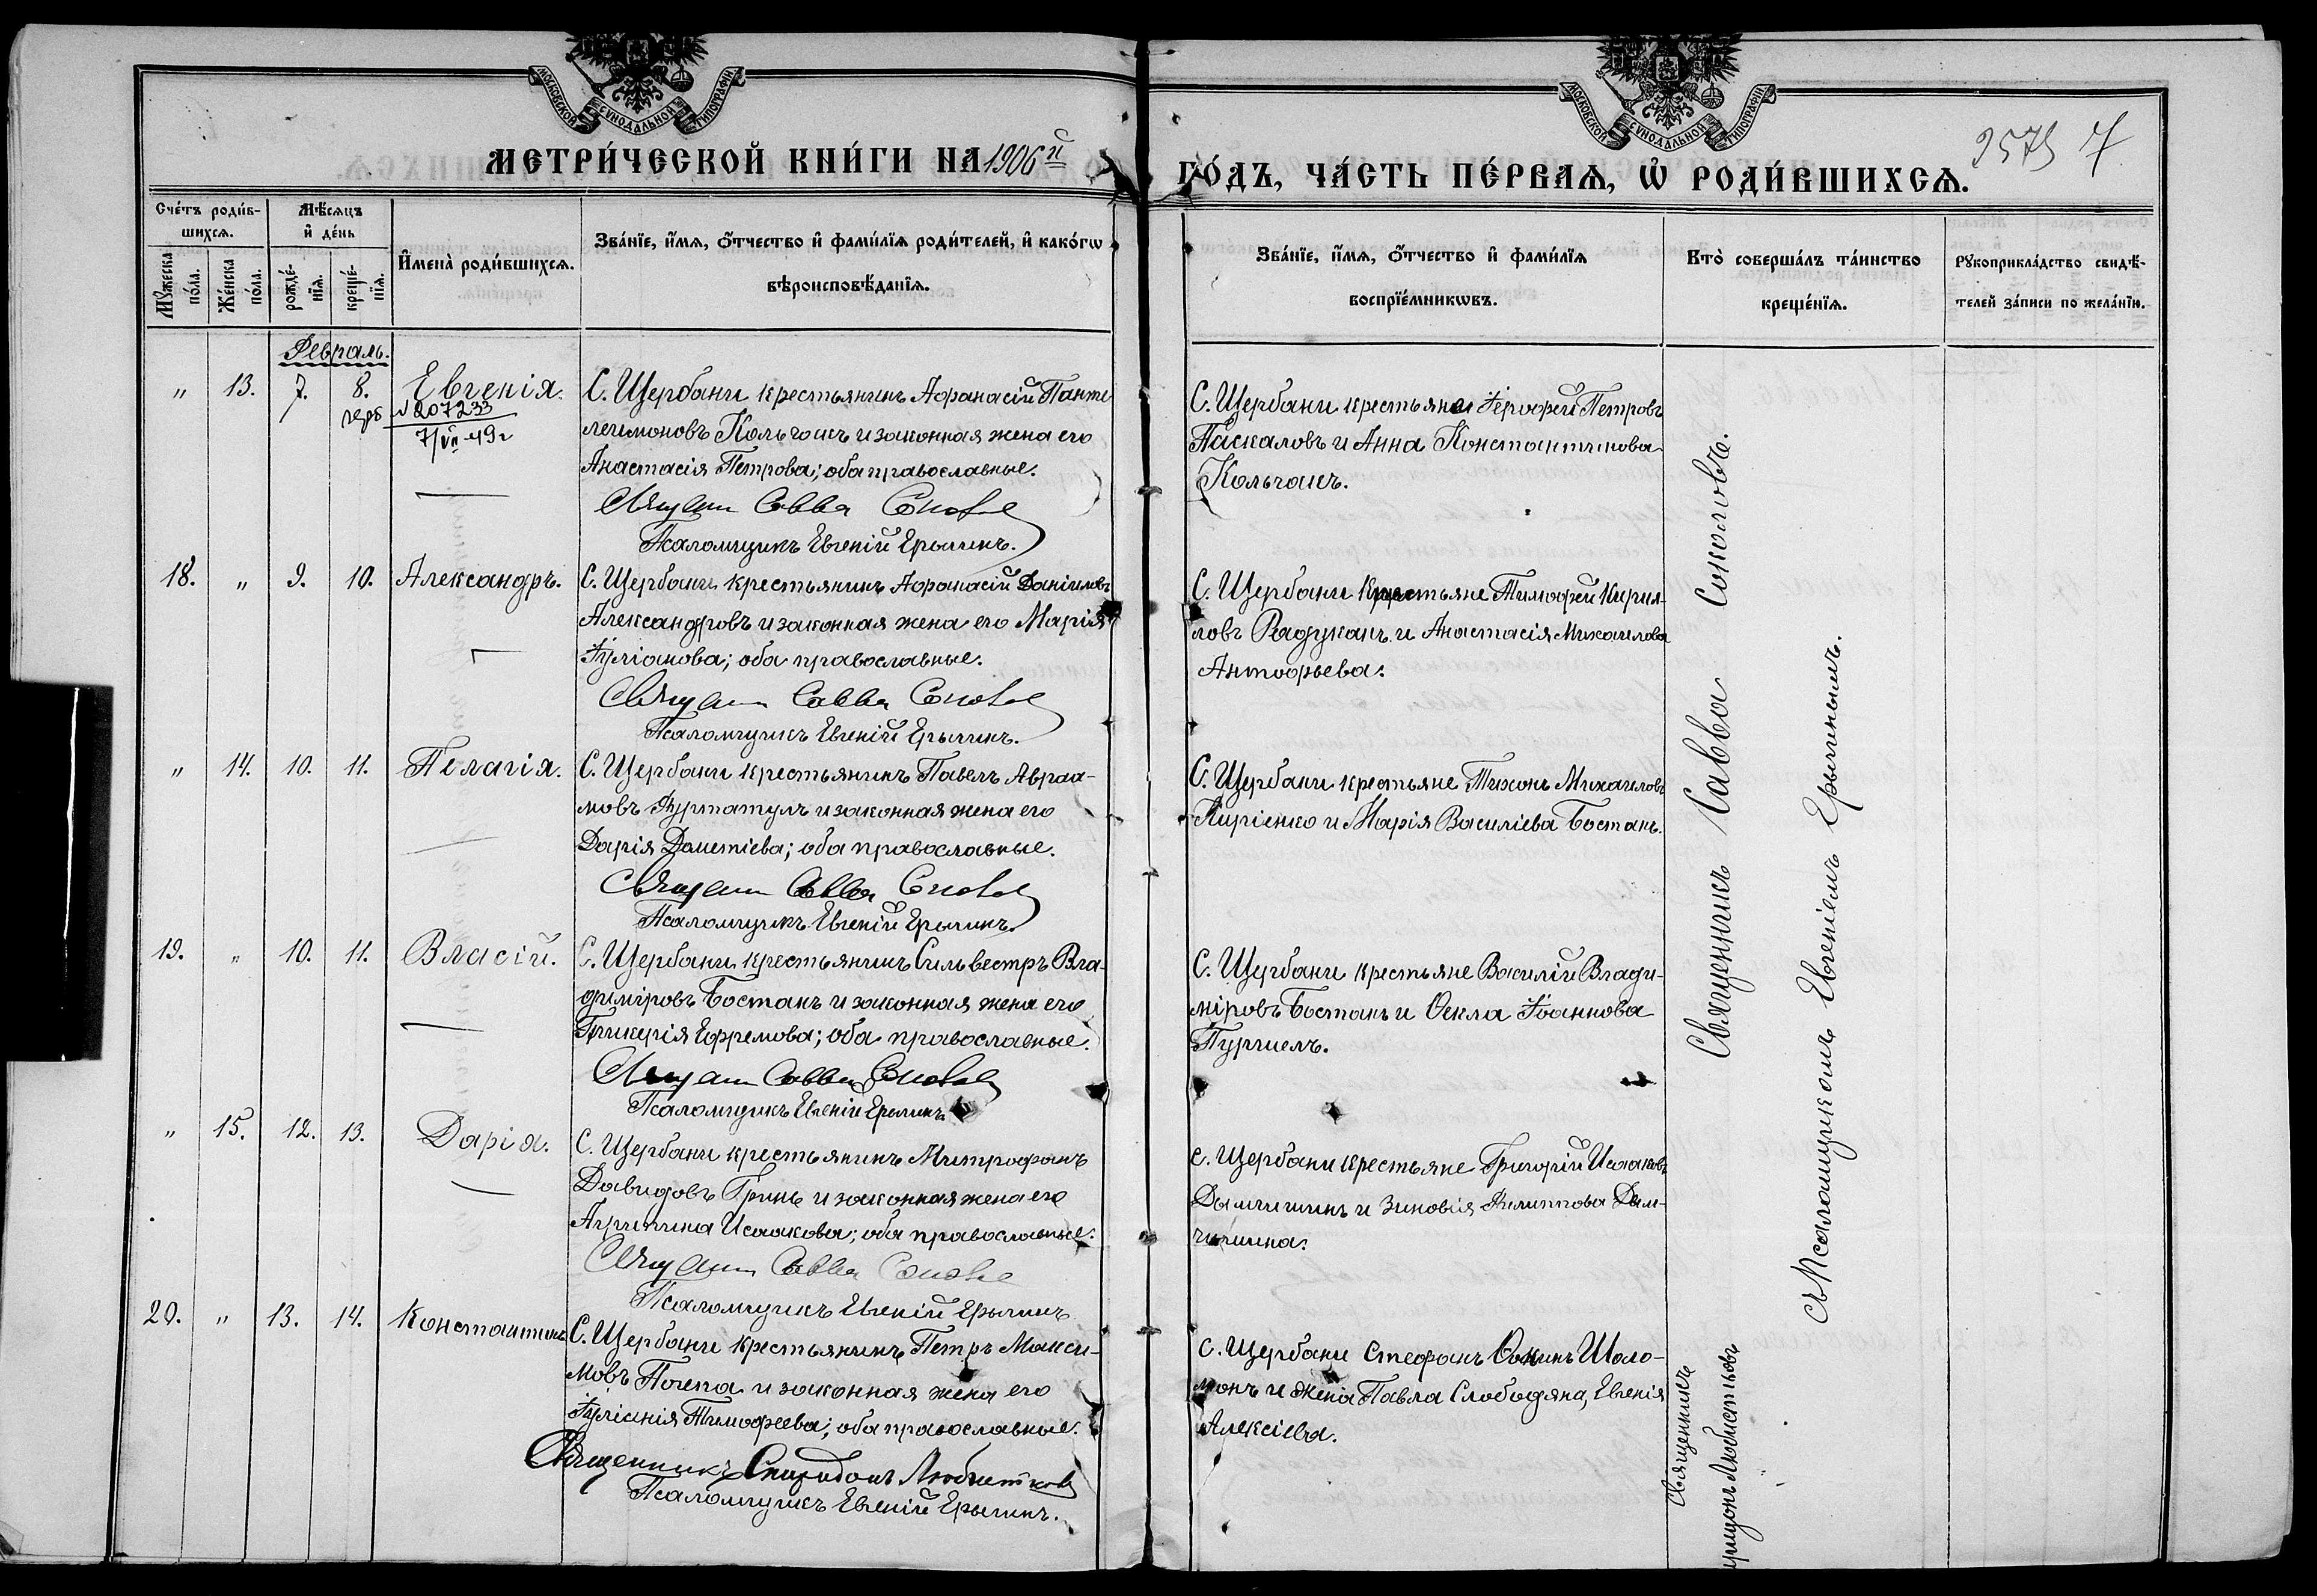 МОСКОВСКОЙ СѴНОДАЛЬНОЙ ТИПОГРАФІИ.
МОСКОВСКОЙ СѴНОДАЛЬНОЙ ТИПОГРАФІИ.
МЕТРИ́ЧЕСКОЙ КНИ́ГИ НА 1906й
ГО́ДЪ, ЧА́СТЬ ПЕ́РВАЯ, Ѡ҆ РОДИ́ВШИХСЯ.
Сче́тъ роди́в-
шихся.
Мѣ́сяцъ
и҆ де́нь
Мꙋ́жеска
по́ла.
Же́нска
по́ла.
рожде́-
нїя.
креще́-
нїя.
И҆мена̀ роди́вшихся.
Зва́нїе, и҆́мя, ѻ҆́тчество и҆ фами́лїя роди́телей, и҆ како́гѡ
вѣроисповѣ́данїя.
Зва́нїе, и҆́мя, ѻ҆́тчество и҆ фами́лїя
воспрїе́мникѡвъ.
Кто̀ соверша́лъ та́инство
креще́нїя.
Рꙋкоприкла́дство свидѣ́-
телей за́писи по жела́нїю.
Февраль.
" 13. 7. 8. Евгенія.
№ 207233
7/VII-49г
С. Щербани крестьянинъ Афанасій Панте
леимоновъ Кольчакъ и законная жена его
Анастасія Петрова; оба православные.
Савва
Псаломщикъ Евгеній Ерылинъ.
С. Щербани крестьяне Іерофей Петровъ
Паскаловъ и Анна Константинова
Кольчакъ.
18. " 9. 10. Александръ.
С. Щербани крестьянинъ Афанасій Даніиловъ
Александровъ и законная жена его Марія
Іуліанова; оба православные.
Савва
Псаломщикъ Евгеній Ерылинъ.
С. Щербани крестьяне Тимофей Кирил-
ловъ Радуканъ и Анастасія Михаилова
Антофьева.
" 14. 10. 11. Пелагія.
С. Щербани крестьянинъ Павелъ Авраа-
мовъ Фуртатулъ и законная жена его
Дарія Дометіева; оба православные.
Савва
Псаломщикъ Евгеній Ерылинъ.
С. Щербани крестьяне Тихонъ Михаиловъ
Киріенко и Марія Василіева Бостанъ.
19. " 10. 11. Власій.
С. Щербани крестьянинъ Сильвестръ Вла-
диміровъ Бостанъ и законная жена его
Гликерія Ефремова; оба православные.
Савва
Псаломщикъ Евгеній Ерылинъ
С. Щербани крестьяне Василій Влади-
міровъ Бостанъ и Ѳекла Іоаннова
Пургиелъ.
" 15. 12. 13. Дарія.
С. Щербани крестьянинъ Митрофанъ
Давидовъ Гринь и законная жена его
Агрипина Исаакова; оба православные.
Савва
Псаломщикъ Евгеній Ерылинъ
С. Щербани крестьяне Григорій Исааковъ
и Зиновія Филиппова
20. " 13. 14. Константинъ
С. Щербани крестьянинъ Петръ Макси-
мовъ и законная жена его
Іуліанія Тимофеева; оба православные.
Священникъ Спиридонъ Любистковъ
Псаломщикъ Евгеній Ерылинъ.
С. Щербани Стефанъ Шоло-
монъ и жена Павла Слободяна, Евгенія
Алексіева.
Священникъ Савва Соколовъ.
съ Псаломщикомъ Евгеніемъ Ерылинымъ.
Священникъ